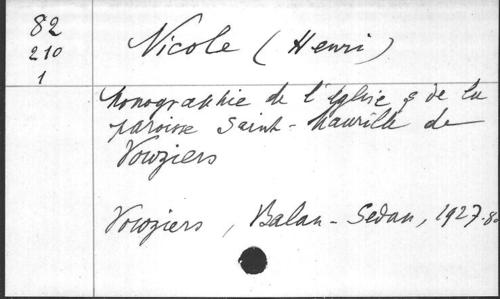 82
210
1
Nicole (Henri)
Monographie de l'Eglise & de la
paroisse Saint-Maurille de
Vouziers
Vouziers, Balan-Sedan, 1927. 8°